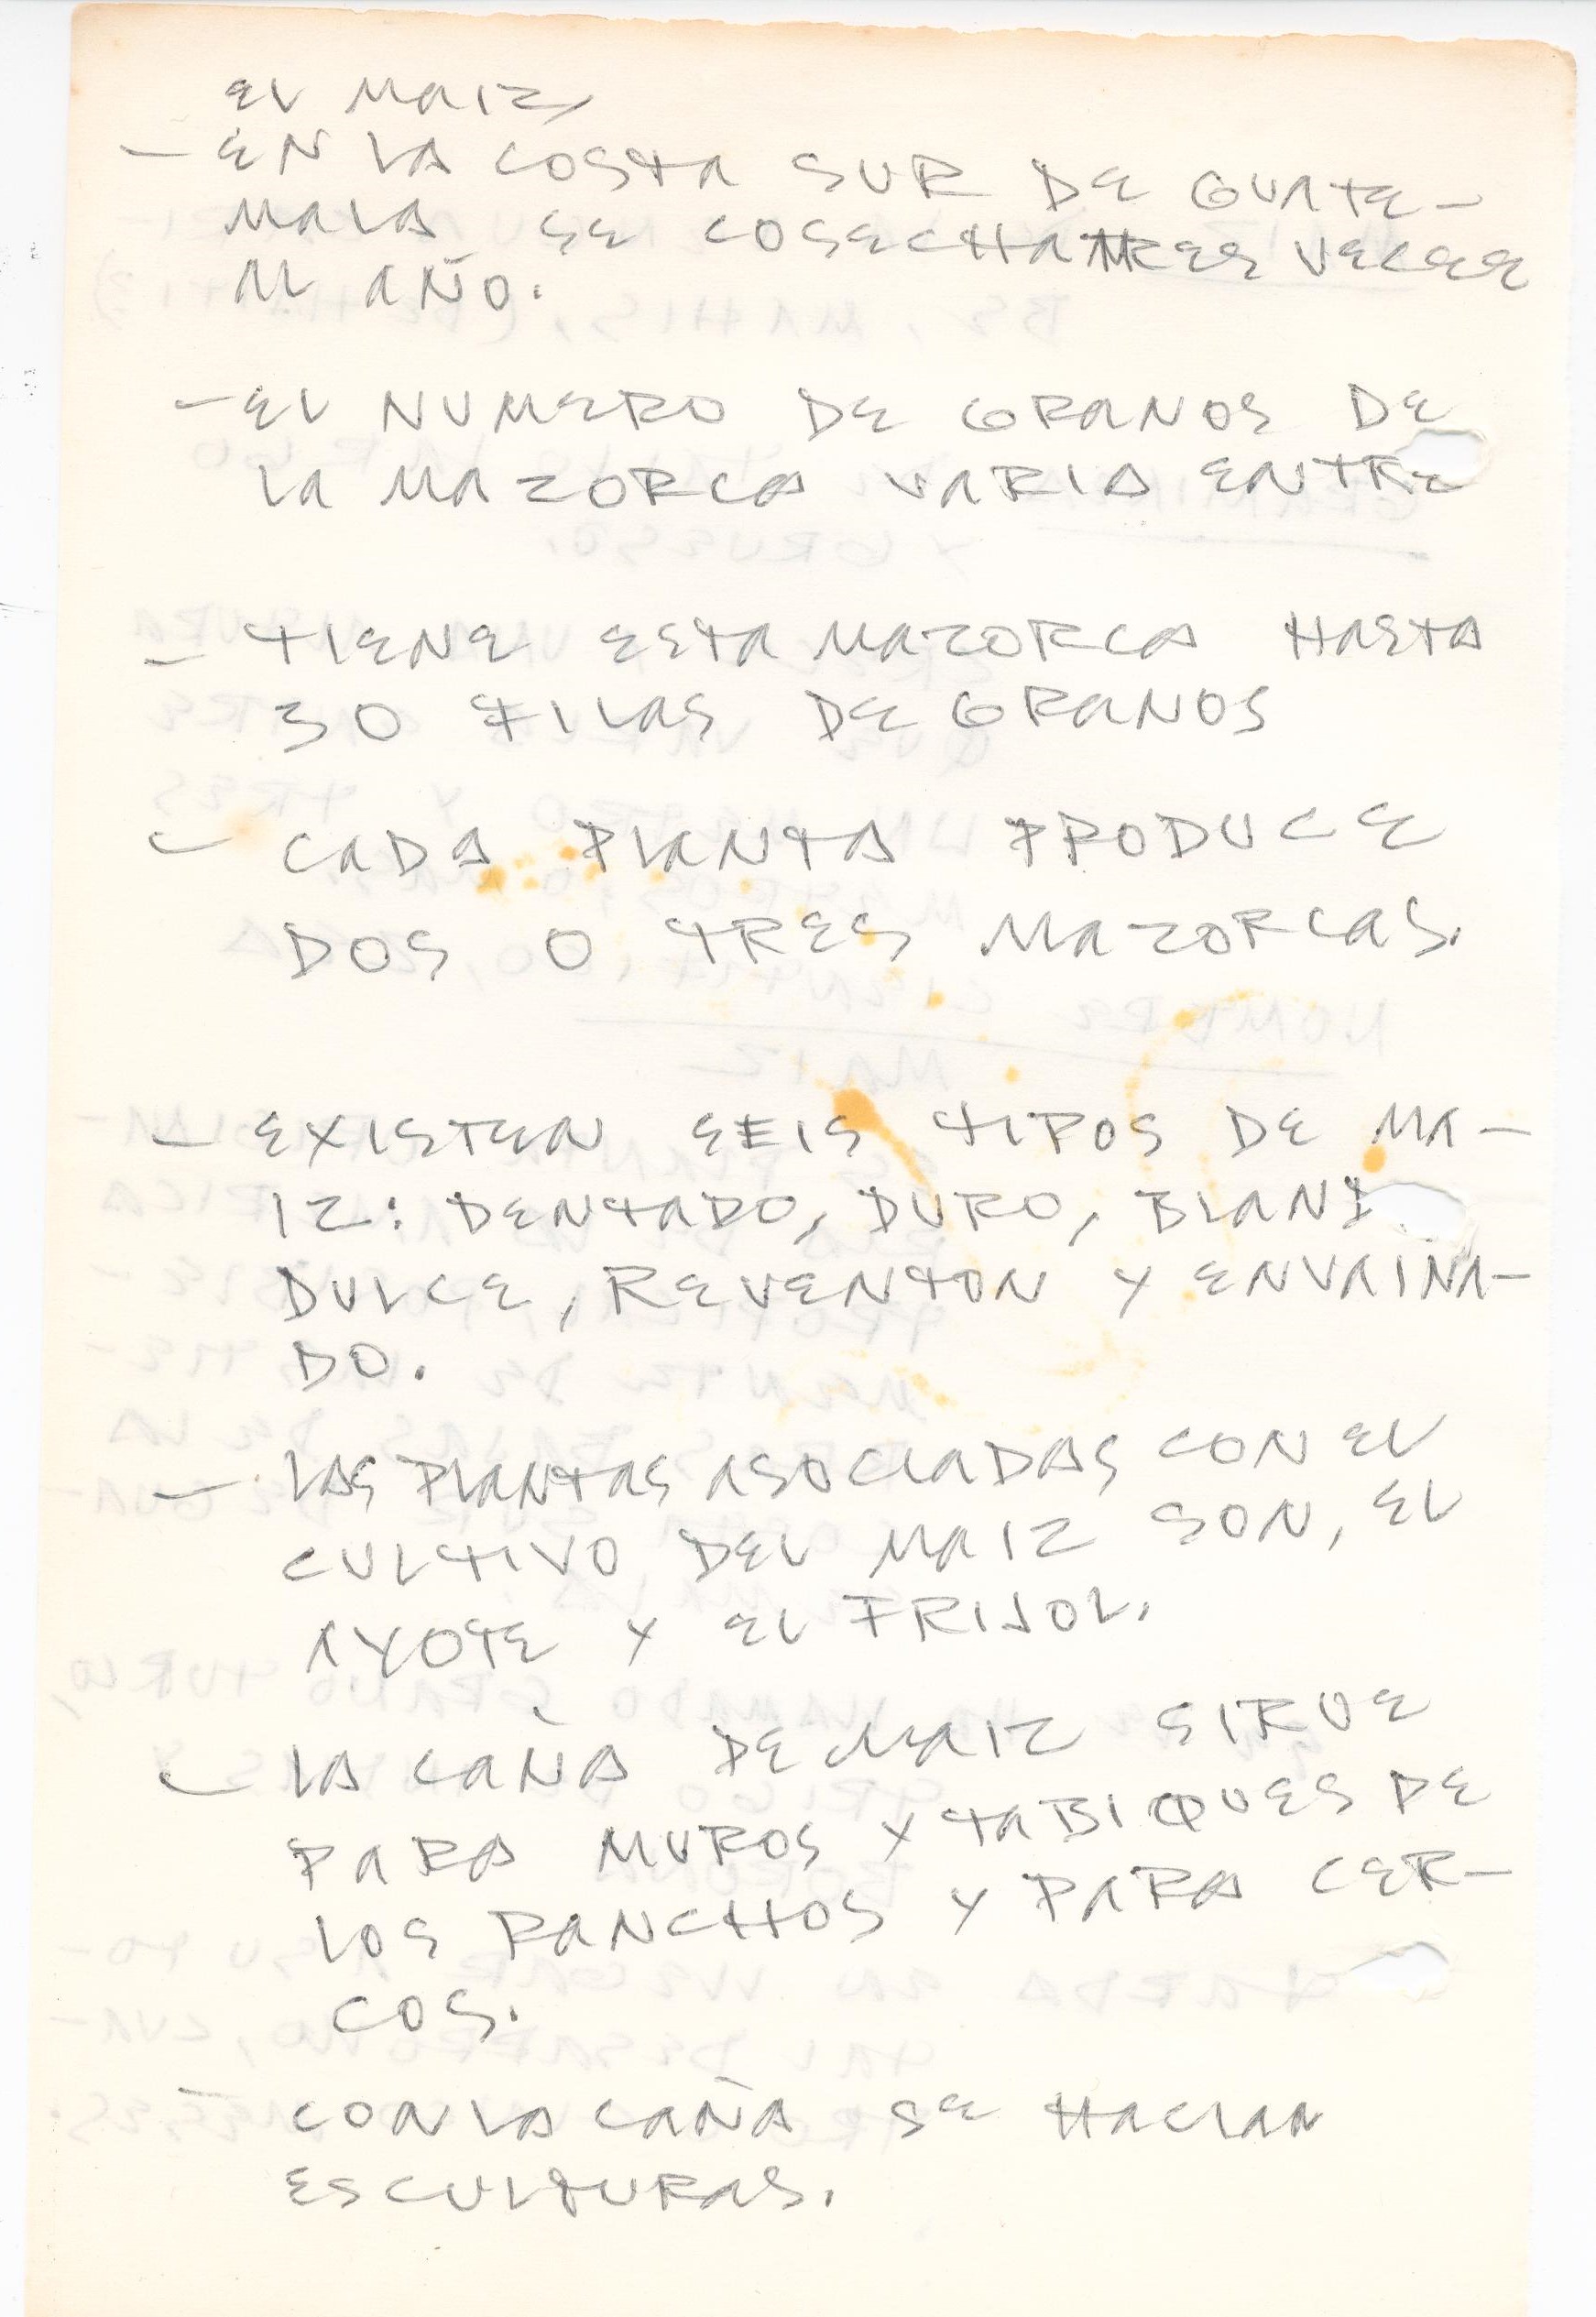 EL MAIZ,
- EN LA COSTA SUR DE GUATE-
MALA SE COSECHA TRES VECES
AL AÑO.
- EL NUMERO DE GRANOS DE
LA MAZORCA VARIA ENTRE
- TIENE ESTA MAZORCA HASTA
30 FILAS DE GRANOS
- CADA PLANTA PRODUCE
DOS O TRES MAZORCAS.
- EXISTEN SEIS TIPOS DE MA-
IZ: DENTADO, DURO,
DULCE, REVENTON Y ENVAINA-
DO.
- LAS PLANTAS ASOCIADAS CON EL
CULTIVO DEL MAIZ SON, EL
AYOTE Y EL FRIJOL.
- LA CAÑA DE MAIZ SIRVE
PARA MUROS Y TABIQUES DE
LOS RANCHOS Y PARA CER-
COS.
- CON LA CAÑA SE HACIAN
ESCULTURAS.